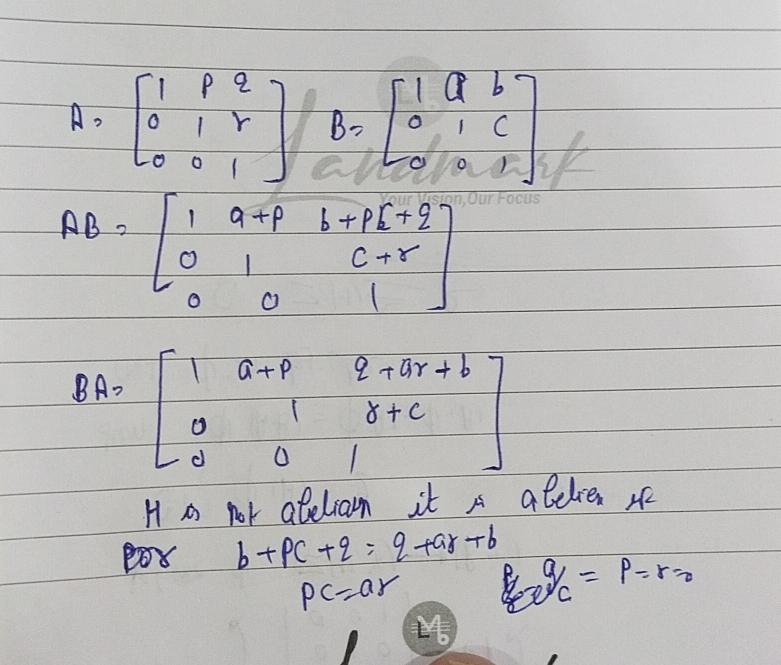 A = [1 p q   B = [1 a b
0 1 r   0 1 c
0 0 1]   0 0 1]
Landmark
Your Vision, Our Focus
AB = [1 a+p b+pc+q
0 1 c+r
0 0 1]
BA = [1 a+p q+ar+b
0 1 r+c
0 0 1]
H is not abeliam it is abelien if
b+pc+q = q+ar+b
pc=ar = p=r=0